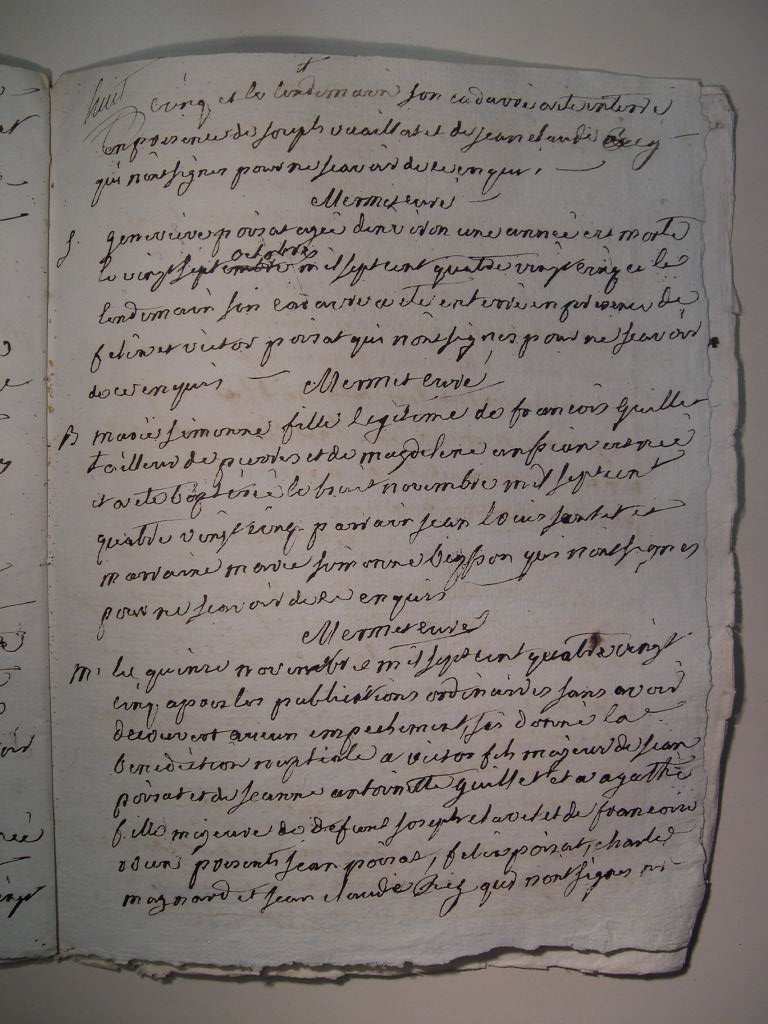 huit
cinq et le lendemain son cadavre a ete enterré
en presence de joseph vuaillat et de jean claude
qui n'ont signes pour ne scavoir de ce enquis.
Mermet curé
S. genevieve poisat agée d'environ une année est morte
le vingt sept octobre mil sept cent quatre vingt cinq et le
lendemain son cadavre a ete enterré en presence de
felix et victor poisat qui n'ont signes pour ne scavoir
de ce enquis Mermet curé
B marie simonne fille legitime de francois Guillet
tailleur de pierres et de magdelene est née
et a ete baptisée le huit novembre mil sept cent
quatre vingt cinq parrain jean louis et
marraine marie simonne qui n'ont signes
pour ne scavoir de ce enquis
Mermet curé
M. le quinze novembre mil sept cent quatre vingt
cinq, apres les publications ordinaires sans avoir
decouvert aucun empechement, j'ai donné la
benediction nuptiale a victor fils majeur de jean
poisat et de jeanne antoinette guillet et a agathe
fille majeure de defunt joseph et de francoise
presents jean poisat, felix poisat, charles
magnard et jean claude qui n'ont signes ni